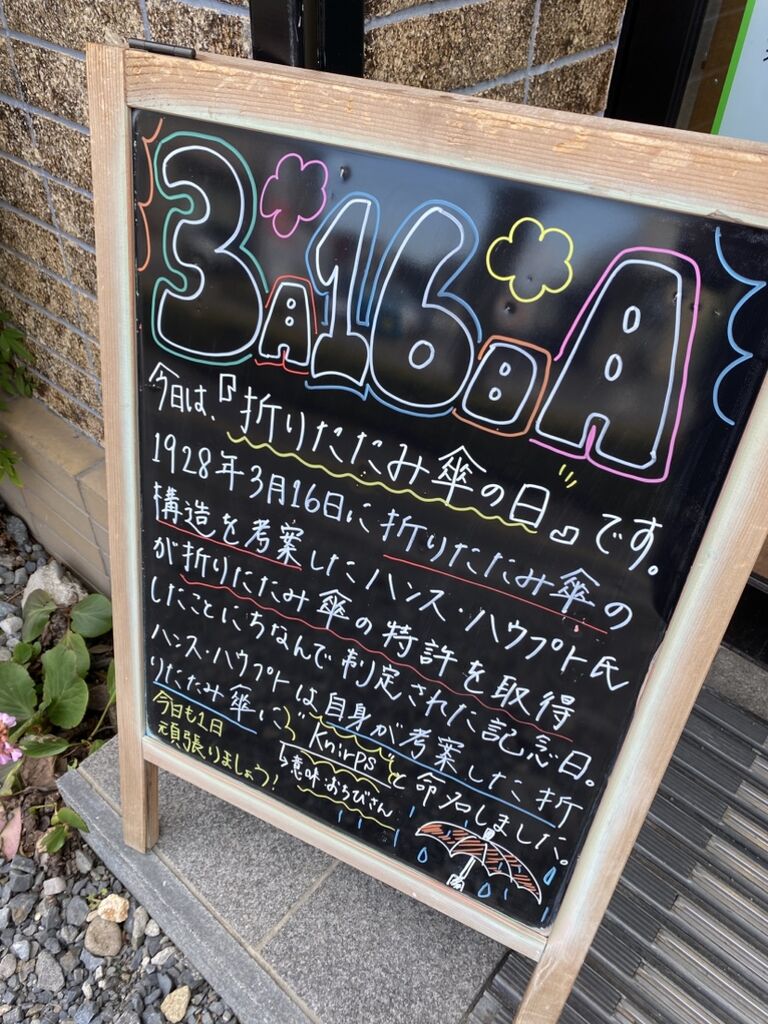 3月16日A
今日は、『折りたたみ傘の日』です。
1928年3月16日に折りたたみ傘の
構造を考案したハンス・ハウプト氏
が折りたたみ傘の特許を取得
したことにちなんで制定された記念日。
ハンス・ハウプトは自身が考案した折
りたたみ傘に"Knirps"と命名しました。
↳意味おちびさん
今日も1日
頑張りましょう!